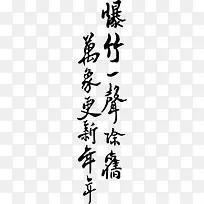 爆竹一聲除舊
萬象更新年年